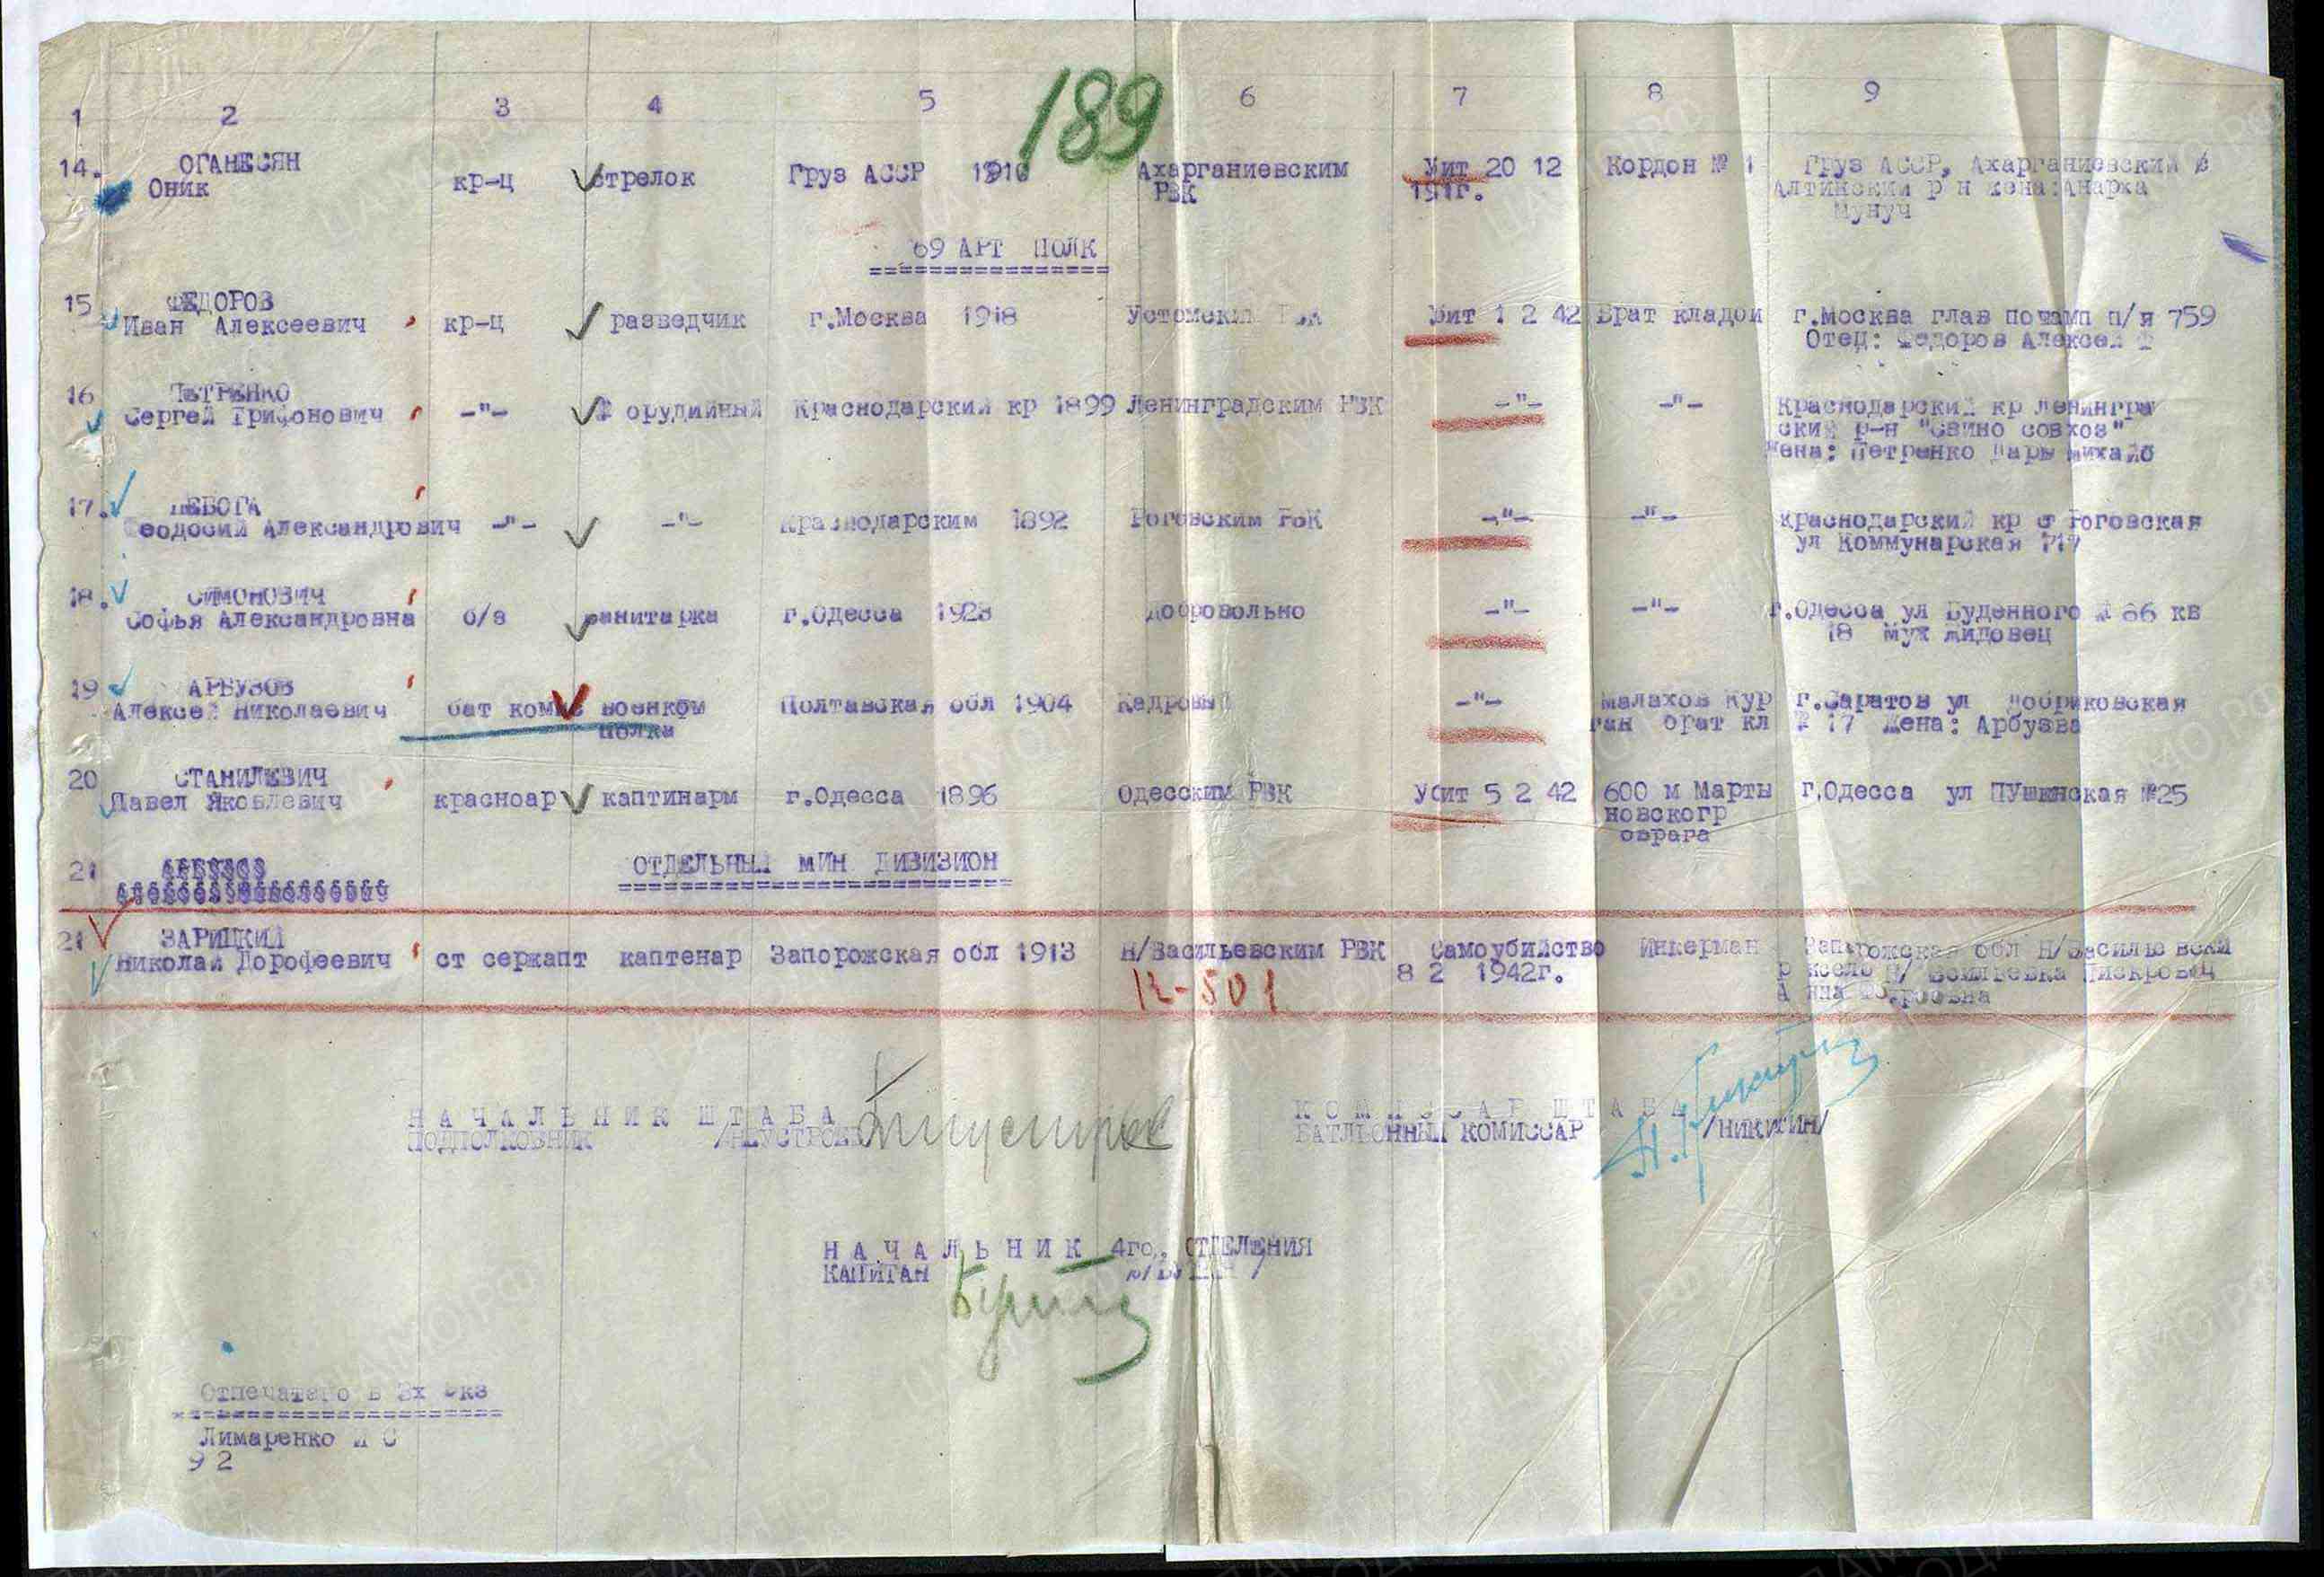 189
1 2 3 4 5 6 7 8 9
14. ОГАНЕСЯН
Оник кр-ц стрелок Груз АССР 1910 Ахарганиевским Уит 20 12 Кордон № 1 Груз АССР, Ахарганиевский
РВК Алтинский р н жена:Анарха
Мунуч
69 АРТ ПОЛК
15 ФЕДОРОВ
Иван Алексеевич кр-ц разведчик г.Москва 1918 Уит 1 2 42 Брат кладои г.Москва глав почамп п/я 759
Отец: Федоров Алексей
16 ПЕТРЕНКО
Сергей Трифонович -"- орудийный Краснодарский кр 1899 Ленинградским РВК -"- -"- Краснодарский кр Ленингра
ский р-н "Свино совхоз"
Жена: Петренко Дарь Михайо
17. ЛЕБОГА
Феодосий Александрович -"- -"- Краснодарским 1892 Роговским РВК -"- -"- Краснодарский кр ст Роговская
ул Коммунарская
18. СИМОНОВИЧ
Софья Александровна б/з санитарка г.Одесса 1923 Добровольно -"- -"- г.Одесса ул Буденного № 66 кв
18 Муж Лидовец
19 АРБУЗОВ
Алексей Николаевич бат комис военком Полтавская обл 1904 Кадровый -"- Малахов Кур г.Саратов ул Добриковская
полка ган брат кл № 17 Жена: Арбузва
20 СТАНИЛЕВИЧ
Павел Яковлевич красноар каптинарм г.Одесса 1896 Одесским РВК Убит 5 2 42 600 м Марты г.Одесса ул ПУшкинская №25
новскогр
оврага
21 ОТДЕЛЬНЫЙ МИН ДИВИЗИОН
21 ЗАРИЦКИЙ
Николай Дорофеевич ст сержапт каптенар Запорожская обл 1913 Н/Васильевским РВК Самоубийство Инкерман Запорожская обл Н/Василье вски
8 2 1942г.
К-501
НАЧАЛЬНИК ШТАБА
ПОДПОЛКОВНИК /НЕУСТРОЕВ
КОМИССАР ШТАБА
БАТЛЬОННЫЙ КОМИССАР /НИКИТИН/
НАЧАЛЬНИК 4го. ОТДЕЛЕНИЯ
КАПИТАН
Отпечатаго в 3х экз
Лимаренко И С
9 2